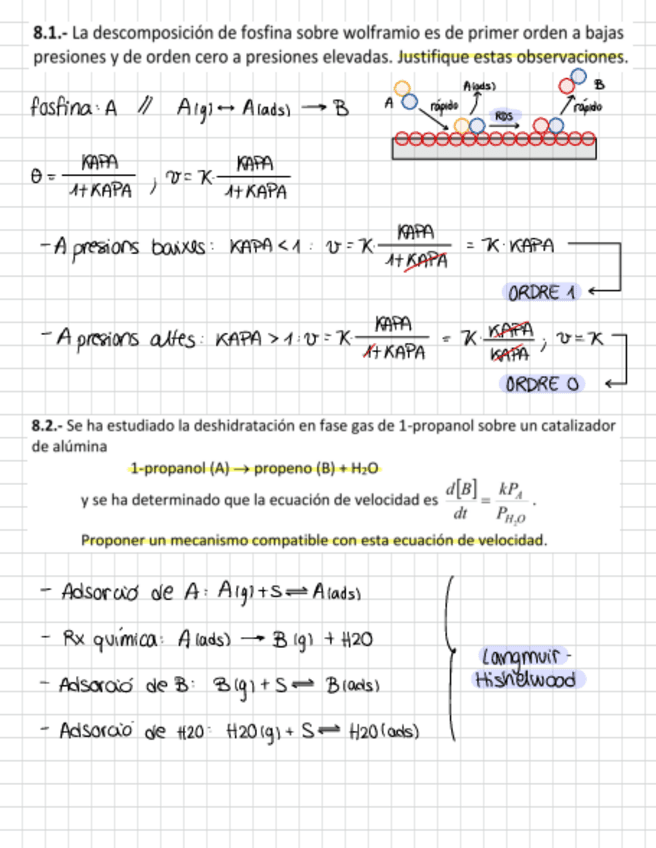 8.1.- La descomposición de fosfina sobre wolframio es de primer orden a bajas
presiones y de orden cero a presiones elevadas. Justifique estas observaciones.
fosfina: A // A(g) ↔ A(ads) → B
A rápido A(ads) RDS rápido B
θ = KAPA / 1+KAPA ; v = K· KAPA / 1+KAPA
- A presions baixes: KAPA < 1 : v = K· KAPA / 1+KAPA = K·KAPA
ORDRE 1
- A presions altes: KAPA > 1 : v = K· KAPA / 1+KAPA = K· KAPA / KAPA ; v = K
ORDRE 0
8.2.- Se ha estudiado la deshidratación en fase gas de 1-propanol sobre un catalizador
de alúmina
1-propanol (A) → propeno (B) + H₂O
y se ha determinado que la ecuación de velocidad es d[B]/dt = kP_A / P_H₂O .
Proponer un mecanismo compatible con esta ecuación de velocidad.
- Adsorció de A: A(g) + S ⇌ A(ads)
- Rx química: A(ads) → B(g) + H2O
- Adsorció de B: B(g) + S ⇌ B(ads)
- Adsorció de H2O: H2O(g) + S ⇌ H2O(ads)
Langmuir-
Hishelwood